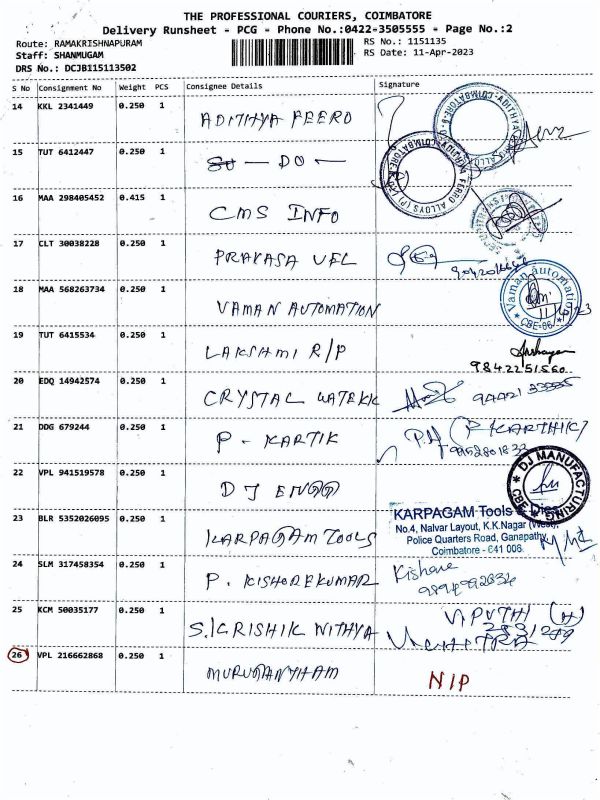 THE PROFESSIONAL COURIERS, COIMBATORE
Delivery Runsheet - PCG - Phone No.:0422-3505555 - Page No.:2
Route: RAMAKRISHNAPURAM RS No.: 1151135
Staff: SHANMUGAM RS Date: 11-Apr-2023
DRS No.: DCJB115113502
S No Consignment No Weight PCS Consignee Details Signature
14 KKL 2341449 0.250 1
ADITHYA FERRO
15 TUT 6412447 0.250 1
— DO —
16 MAA 298405452 0.415 1
CMS INFO
17 CLT 30038228 0.250 1
PRAKASA
18 MAA 568263734 0.250 1
VAMAN AUTOMATION
Vaman automation
CBE-06
19 TUT 6415534 0.250 1
LAKSHMI R/P
9842251560
20 EDQ 14942574 0.250 1
CRYSTAL
21 DDG 679244 0.250 1
P - KARTIK
(P KARTHIK)
22 VPL 941519578 0.250 1
DJ ENGG
DJ MANUFACTURING
CBE
23 BLR 5352026095 0.250 1
KARPAGAM TOOLS
KARPAGAM Tools & Dies
No.4, Nalvar Layout, K.K.Nagar (West),
Police Quarters Road, Ganapathy,
Coimbatore - 641 006.
24 SLM 317458354 0.250 1
P. KISHOREKUMAR
Kishore
25 KCM 50035177 0.250 1
NITHYA
26 VPL 216662868 0.250 1
NIP